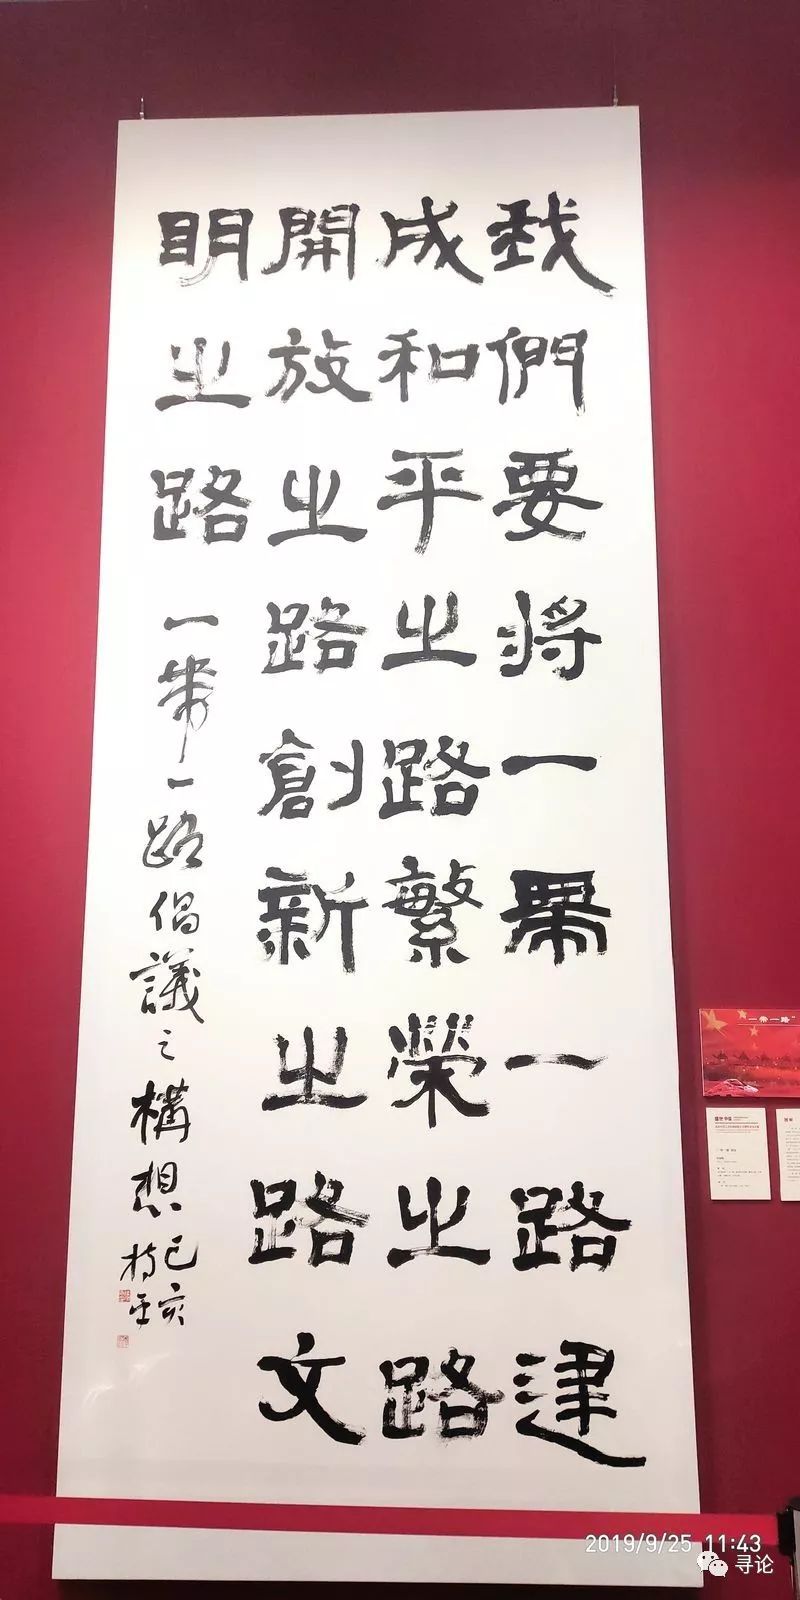 我們要將一帶一路建
成和平之路繁榮之路
開放之路創新之路文
明之路
一帶一路倡議之構想
己亥
"一带一路"
2019/9/25 11:43
寻论